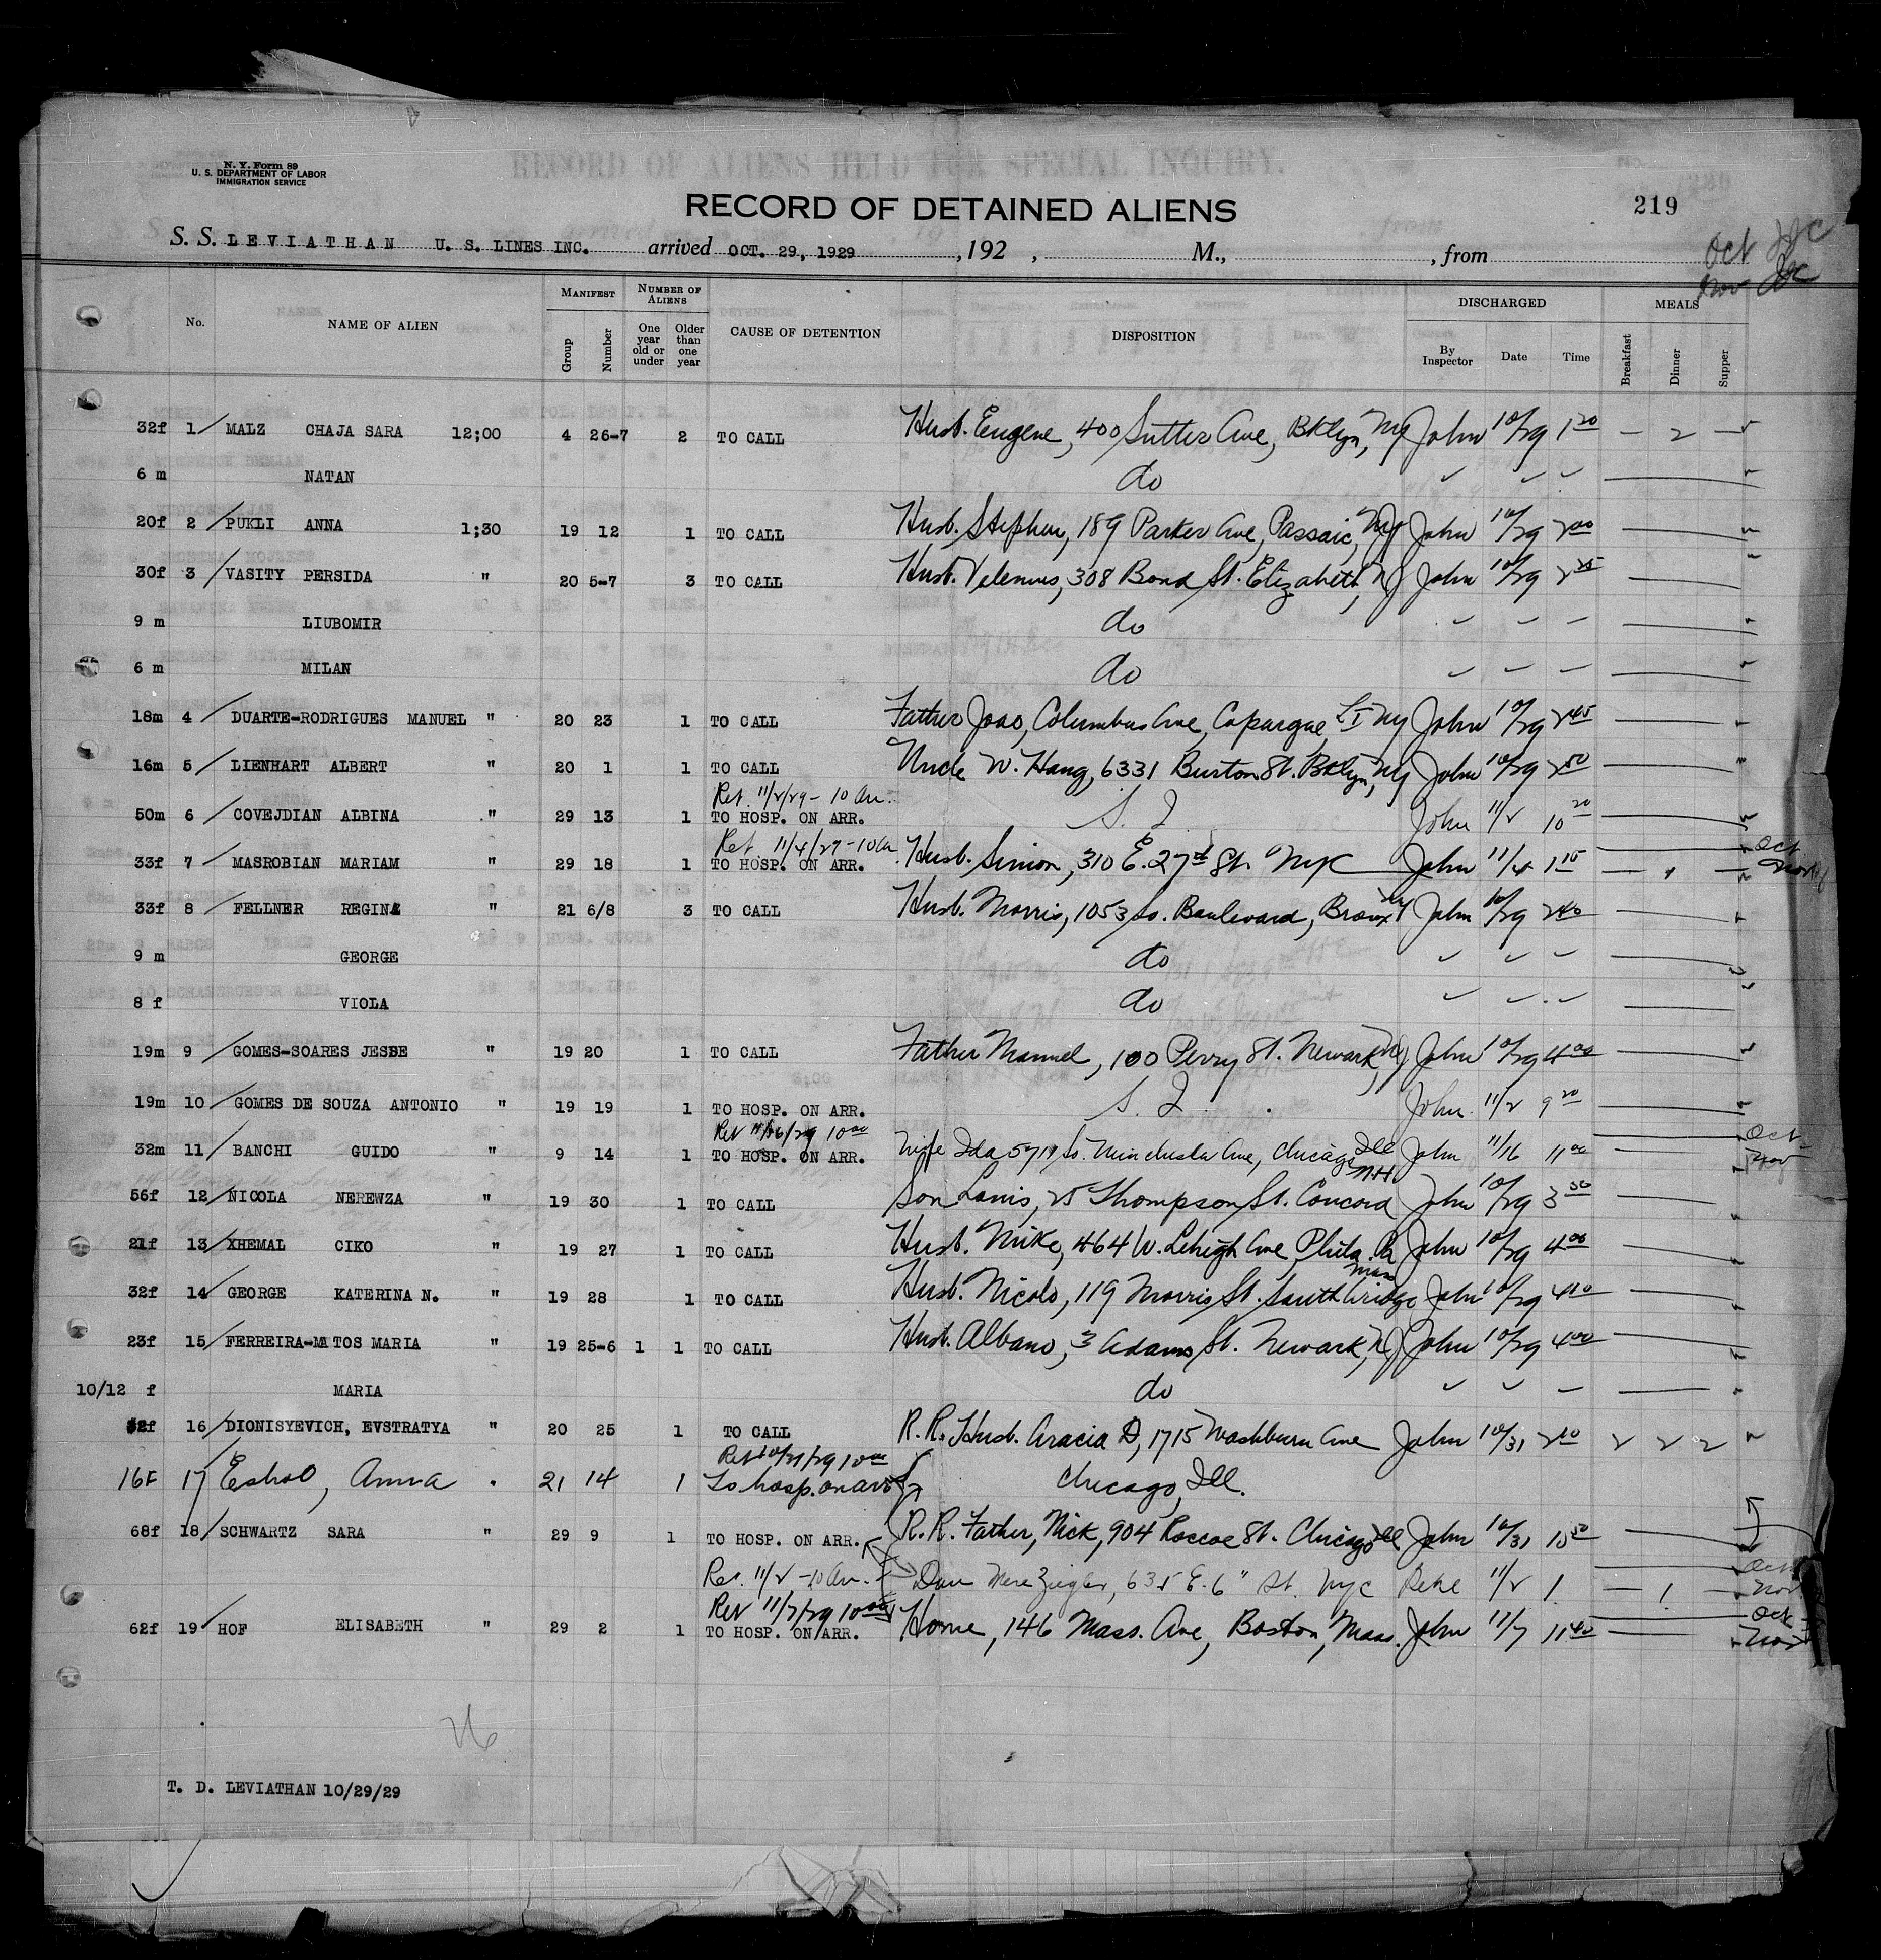 N. Y. Form 89
U. S. DEPARTMENT OF LABOR
IMMIGRATION SERVICE
RECORD OF ALIENS HELD FOR SPECIAL INQUIRY.
RECORD OF DETAINED ALIENS
219
S. S. LEVIATHAN U. S. LINES INC. arrived OCT. 29, 1929 , 192 , M., , from
Oct
Nov
No. NAME OF ALIEN MANIFEST Group Number NUMBER OF ALIENS One year old or under Older than one year CAUSE OF DETENTION DISPOSITION DISCHARGED By Inspector Date Time MEALS Breakfast Dinner Supper
32f 1 MALZ CHAJA SARA 12;00 4 26-7 2 TO CALL Husb. Eugene, 400 Sutter Ave, Bklyn, NY John 10/29 1 20 — 2 —
6 m NATAN do
20f 2 PUKLI ANNA 1;30 19 12 1 TO CALL Husb. Stephen, 189 Parker Ave, Passaic, NJ John 10/29 2 00
30f 3 VASITY PERSIDA " 20 5-7 3 TO CALL Husb. 308 Bond St. Elizabeth, NJ John 10/29 2 25
9 m LIUBOMIR do
6 m MILAN do
18m 4 DUARTE-RODRIGUES MANUEL " 20 23 1 TO CALL Father Joao, Columbus Ave, Copargue, L I NY John 10/29 2 45
16m 5 LIENHART ALBERT " 20 1 1 TO CALL Uncle W. Haug, 6331 Burton St. Bklyn, NY John 10/29 2 50
Ret. 11/2/29 - 10 Am.
50m 6 COVEJDIAN ALBINA " 29 13 1 TO HOSP. ON ARR. S. I. John 11/2 10 20
Ret. 11/4/29 - 10 Am
33f 7 MASROBIAN MARIAM " 29 18 1 TO HOSP. ON ARR. Husb. Simon, 310 E. 27th St. NYC John 11/4 1 15 Oct Nov
33f 8 FELLNER REGINE " 21 6/8 3 TO CALL Husb. Morris, 1053 So. Boulevard, Bronx NY John 10/29 2 40
9 m GEORGE do
8 f VIOLA do
19m 9 GOMES-SOARES JESSE " 19 20 1 TO CALL Father Manuel, 100 Perry St. Newark, NJ John 10/29 4 00
19m 10 GOMES DE SOUZA ANTONIO " 19 19 1 TO HOSP. ON ARR. S. I. John 11/2 9 20
Ret 11/16/29 10 00
32m 11 BANCHI GUIDO " 9 14 1 TO HOSP. ON ARR. Wife Ida 5719 So. Winchester Ave, Chicago Ill John 11/16 11 00 Oct Nov
56f 12 NICOLA NEREWZA " 19 30 1 TO CALL Son Louis, 25 Thompson St. Concord NH John 10/29 3 50
21f 13 XHEMAL CIKO " 19 27 1 TO CALL Husb. Mike, 464 W. Lehigh Ave Phila. Pa John 10/29 4 00
32f 14 GEORGE KATERINA N. " 19 28 1 TO CALL Husb. Nicolo, 119 Morris St. Southbridge Mass John 10/29 4 10
23f 15 FERREIRA-MATOS MARIA " 19 25-6 1 1 TO CALL Husb. Albano, 3 Adams St. Newark, NJ John 10/29 4 00
10/12 f MARIA do
32f 16 DIONISYEVICH, EVSTRATYA " 20 25 1 TO CALL R.R. Husb. Aracia D, 1715 Washburn Ave John 10/31 2 10 2 2 2
Ret 10/31/29 10 00
16F 17 Anna 21 14 1 To hosp. on arr Chicago, Ill.
68f 18 SCHWARTZ SARA " 29 9 1 TO HOSP. ON ARR. R.R. Father, Nick, 904 Roscoe St. Chicago Ill John 10/31 10 50
Ret. 11/2 - 10 Am. Dau Ziegler, 635 E. 6" St. NYC 11/2 1 — 1 — Oct Nov
Ret 11/7/29 10 00
62f 19 HOF ELISABETH " 29 2 1 TO HOSP. ON ARR. Home, 146 Mass. Ave, Boston, Mass. John 11/7 11 40 Oct Nov
26
T. D. LEVIATHAN 10/29/29